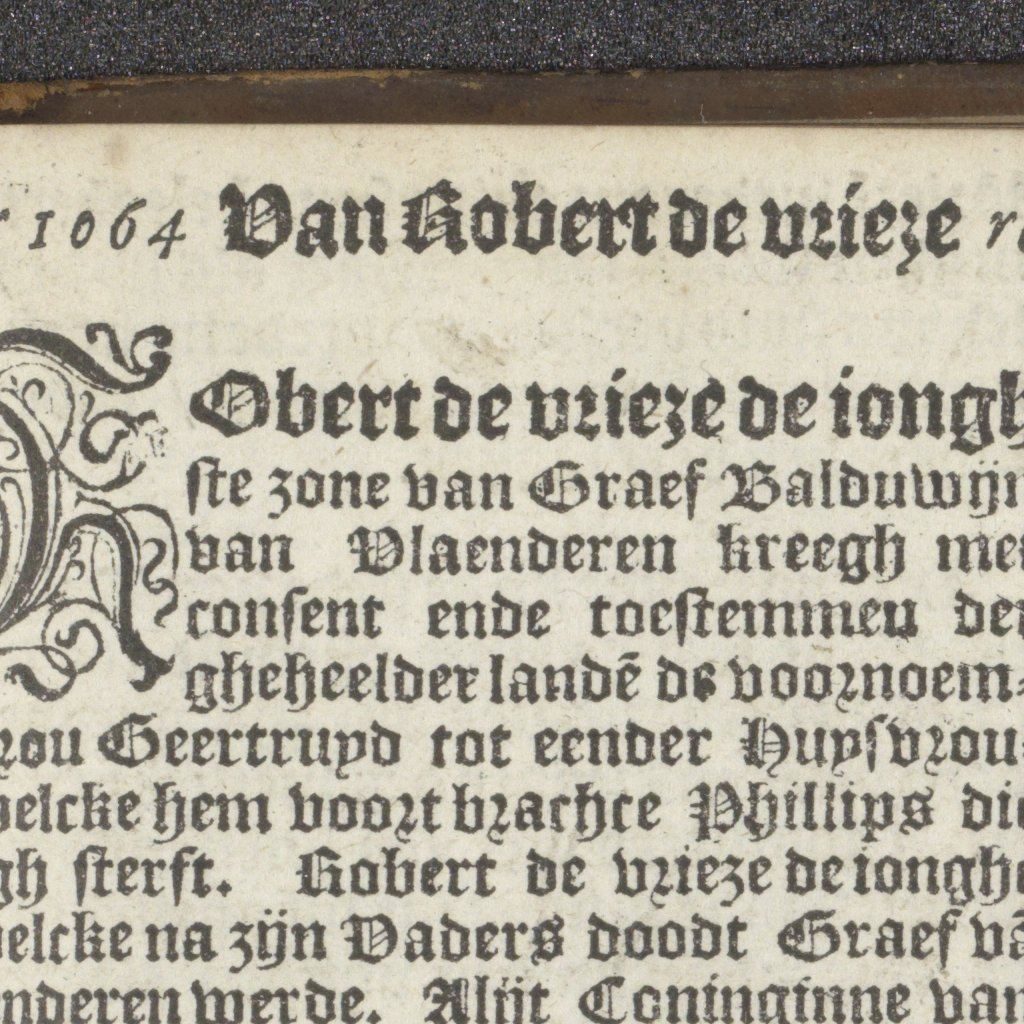 1064 Van Robert de vrieze
RObert de vrieze de iongh
ste zone van Graef Balduwijn
van Vlaenderen kreegh met
consent ende toestemmen der
gheheelder landē de voornoem⸗
rou Geertruyd tot eender Huysvrou⸗
welcke hem voort brachte Phillips die
gh sterft. Robert de vrieze de ionghe
welcke na zijn Vaders doodt Graef vā
nderen werde. Alijt Coninginne van